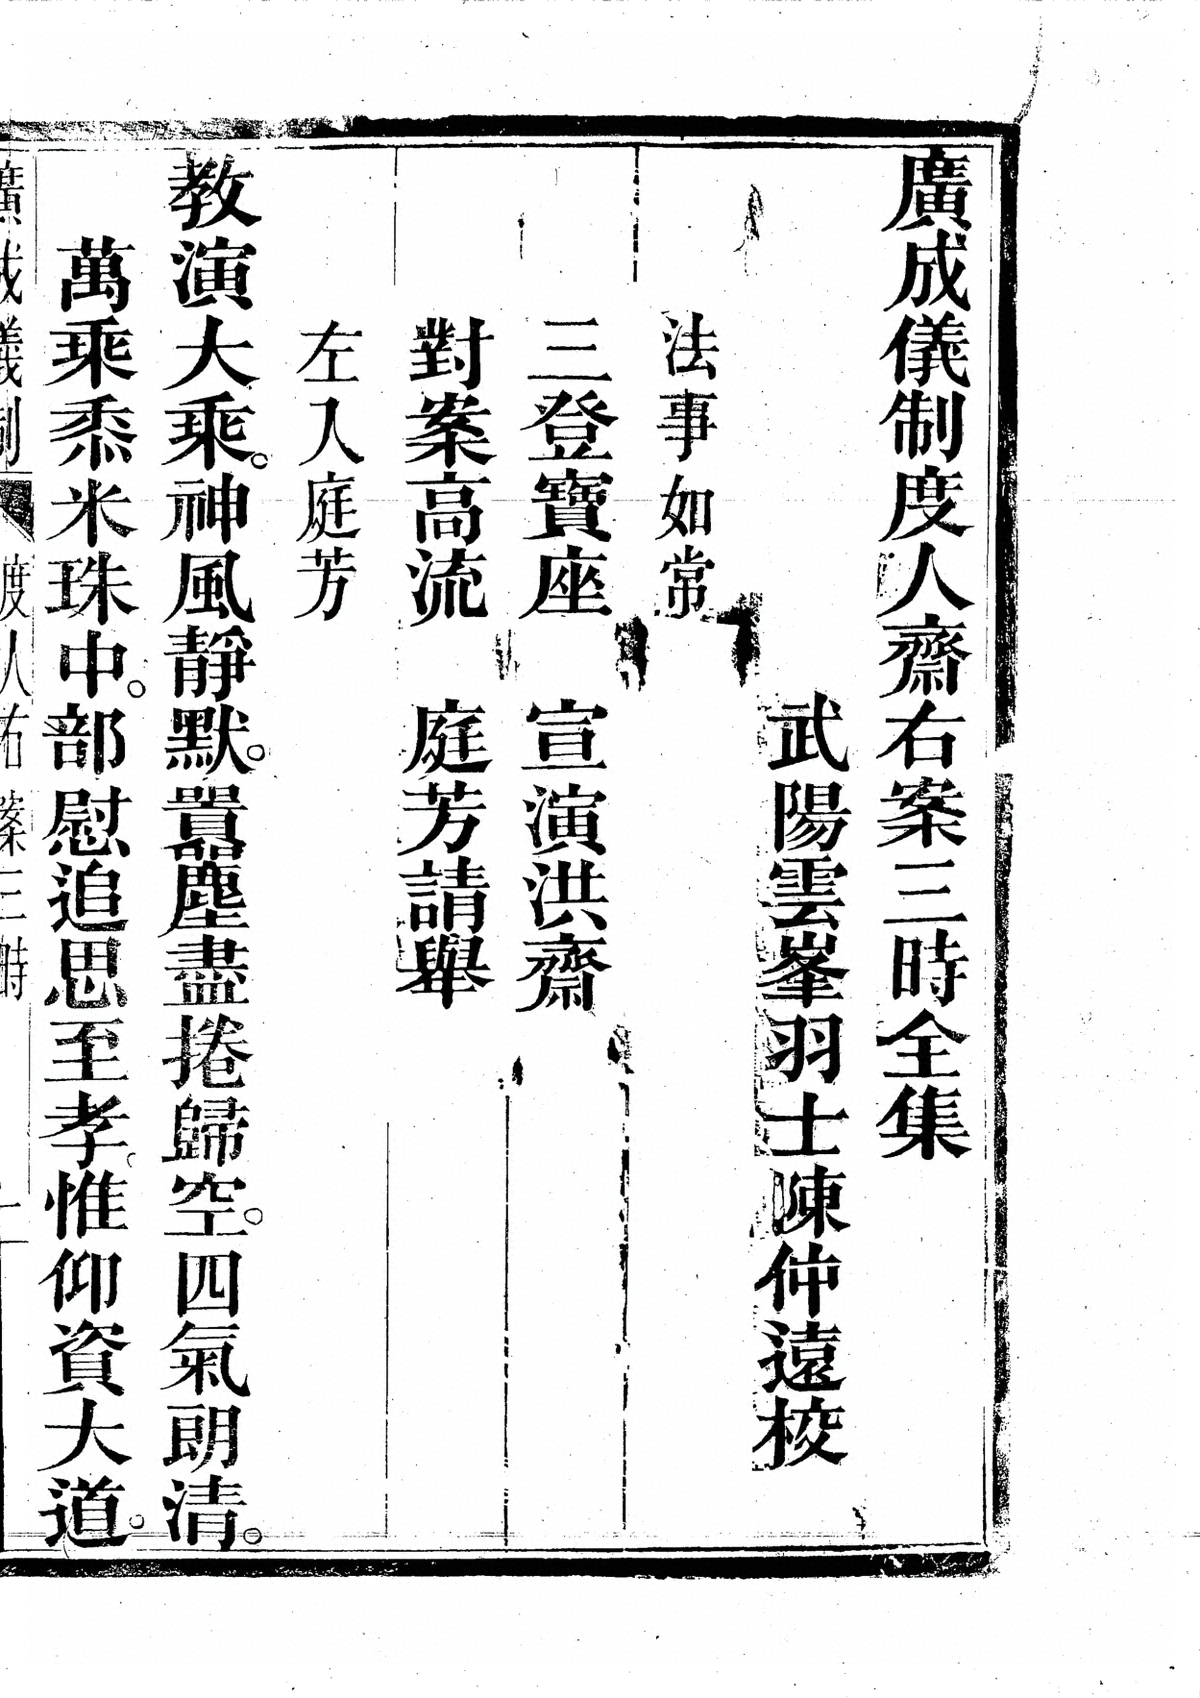 廣成儀制度人齋右案三時全集
武陽雲峯羽士陳仲遠校
法事如常
三登寶座　宣演洪齋
對案高流　庭芳請舉
左人庭芳
教演大乘。神風靜默。囂塵盡捲歸空。四氣朗清。
萬乘黍米珠中。部慰追思至孝。惟仰資大道。
廣成儀制　度人右案三時　一